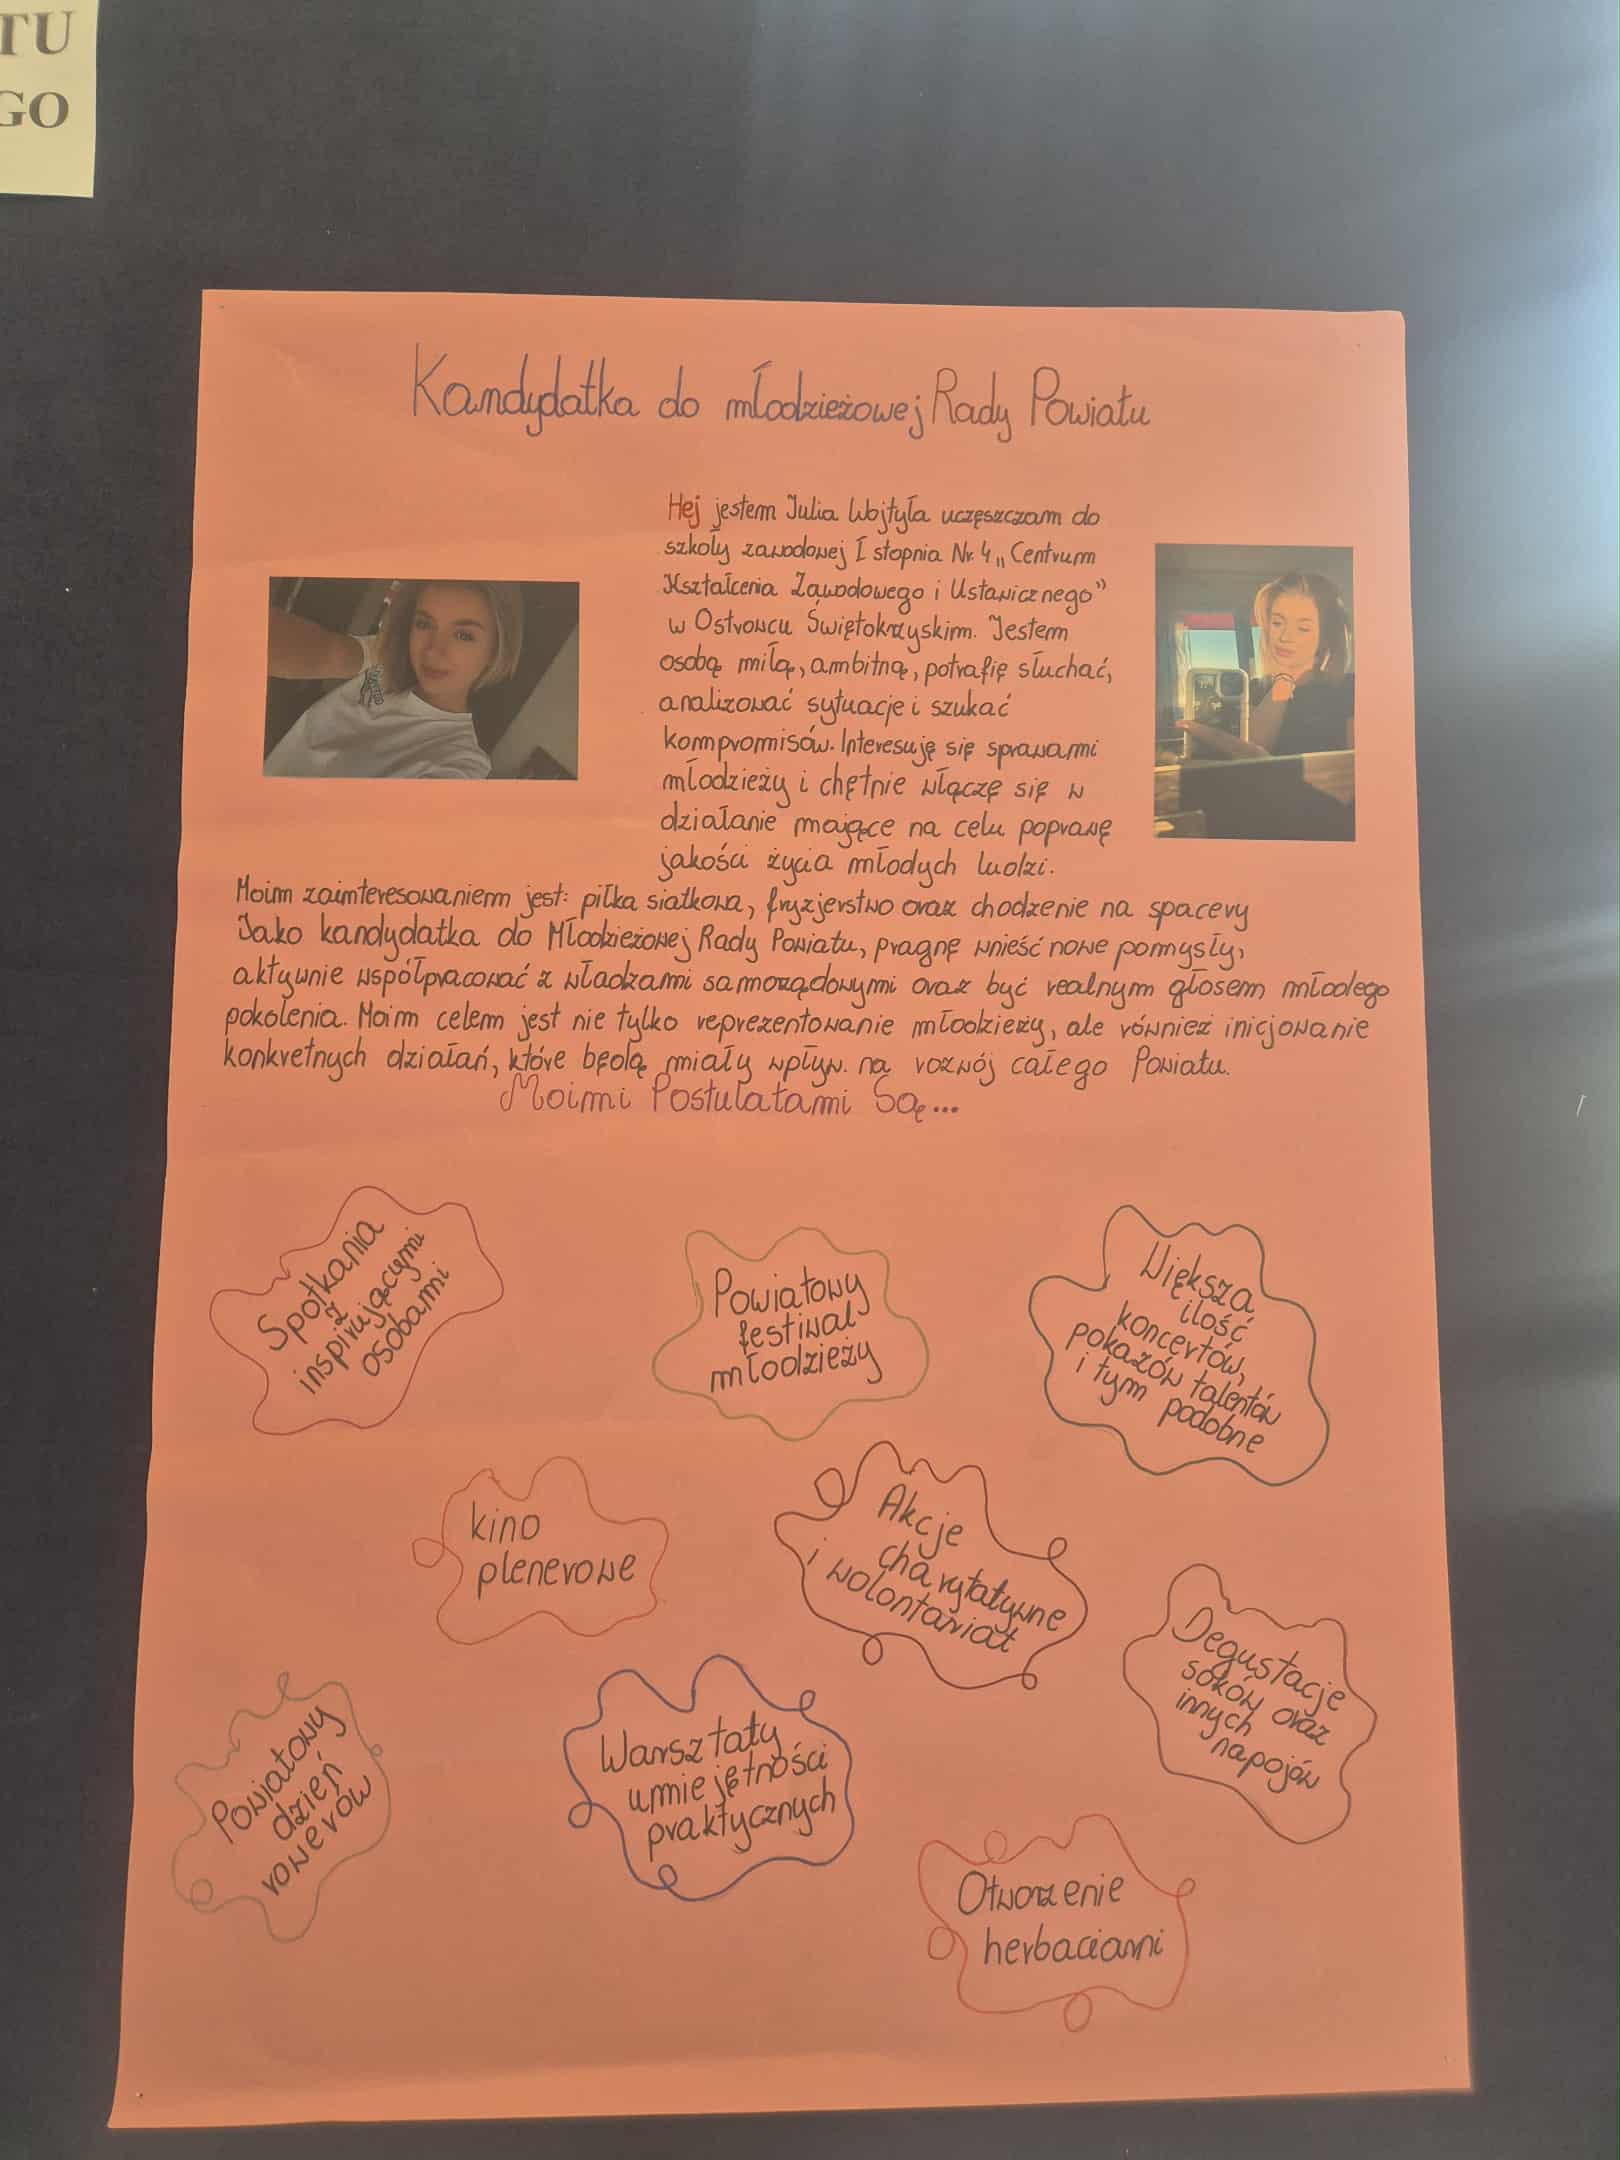 TU
GO
Kandydatka do młodzieżowej Rady Powiatu
Hej jestem Julia Wojtyła uczęszczam do
szkoły zawodowej I stopnia Nr. 4 „ Centrum
Kształcenia Zawodowego i Ustawicznego”
w Ostrowcu Świętokrzyskim. Jestem
osobą miłą, ambitną, potrafię słuchać,
analizować sytuacje i szukać
kompromisów. Interesuję się sprawami
młodzieży i chętnie włączę się w
działanie mające na celu poprawę
jakości życia młodych ludzi.
Moim zainteresowaniem jest: piłka siatkowa, fryzjerstwo oraz chodzenie na spacery
Jako kandydatka do Młodzieżowej Rady Powiatu, pragnę wnieść nowe pomysły,
aktywnie współpracować z władzami samorządowymi oraz być realnym głosem młodego
pokolenia. Moim celem jest nie tylko reprezentowanie młodzieży, ale również inicjowanie
konkretnych działań, które będą miały wpływ. na rozwój całego Powiatu.
Moimi Postulatami Są...
Spotkania
z
inspirującymi
osobami
Powiatowy
festiwal
młodzieży
Większa
ilość
koncertów,
pokazów talentów
i tym podobne
kino
plenerowe
Akcje
charytatywne
i wolontariat
Degustacje
soków oraz
innych
napojów
Powiatowy
dzień
rowerów
Warsztaty
umiejętności
praktycznych
Otworzenie
herbaciarni